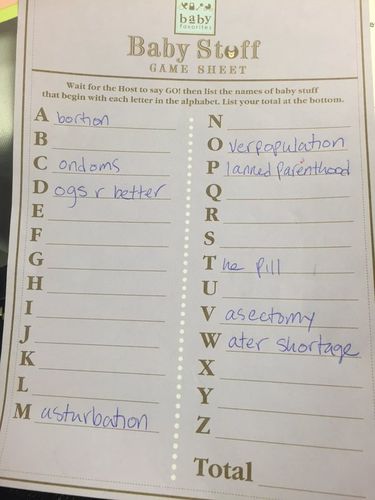 baby
favorites
Baby Stuff
GAME SHEET
Wait for the Host to say GO! then list the names of baby stuff
that begin with each letter in the alphabet. List your total at the bottom.
A bortion
B
C ondoms
D ogs r better
E
F
G
H
I
J
K
L
M asturbation
N
O verpopulation
P lanned parenthood
Q
R
S
T he pill
U
V asectomy
W ater shortage
X
Y
Z
Total